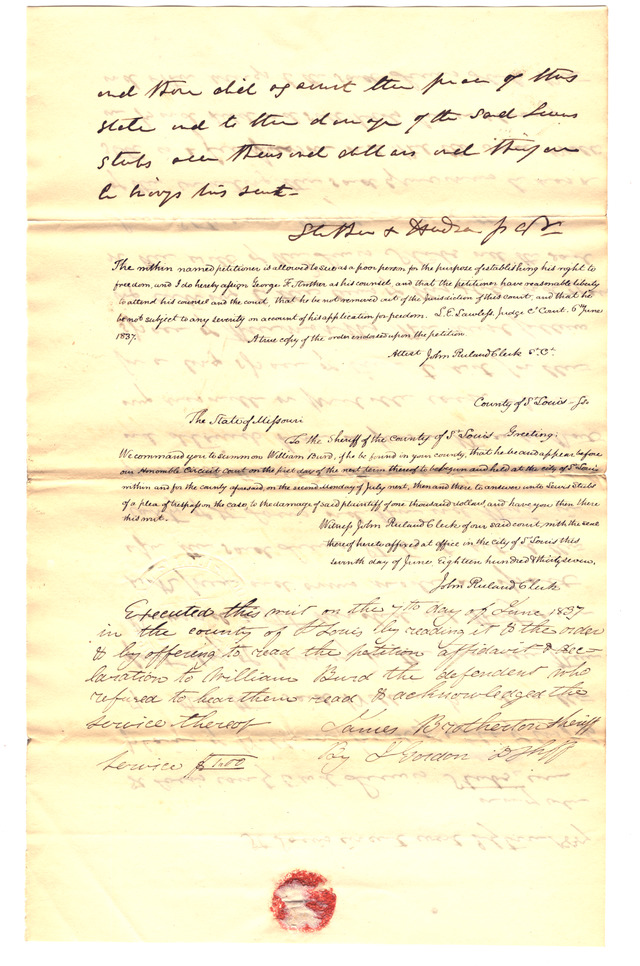 and there did against the peace of this
state and to the damage of the said Lewis
Stubs one thousand dollars and therefore
he brings his suit -
Strother & Hudson p. q.
The within named petitioner is allowed to sue as a poor person for the purpose of establishing his right to
freedom, and I do hereby assign George F. Strother as his counsel, and that the petitioner have reasonable liberty
to attend his counsel and the court, that he be not removed out of the jurisdiction of this court, and that he
be not subject to any severity on account of his application for freedom. L. E. Lawless, Judge Ct Court. 6th June
1837. A true copy of the order endorsed upon the petition.
Attest John Ruland Clerk
County of St Louis - Ss.
The State of Missouri
To the Sheriff of the County of St Louis - Greeting:
We command you to summon William Burd, if he be found in your county, that he be and appear before
our Honorable Circuit Court on the first day of the next term thereof to be begun and held at the city of St Louis
within and for the county aforesaid, on the second Monday of July next, then and there to answer unto Lewis Stubs
of a plea of trespass on the case, to the damage of said plaintiff of one thousand dollars, and have you then there
this writ.
Witness John Ruland Clerk of our said court, with the seal
thereof hereto affixed at office in the city of St Louis this
seventh day of June Eighteen hundred & thirty seven.
John Ruland Clerk
Executed this writ on the 7th day of June 1837
in the county of St Louis by reading it & the order
& by offering to read the petition affidavit & dec-
laration to William Burd the defendent who
refused to hear them read & acknowledged the
service thereof James Brotherton Sheriff
service $1.00 By J Gordon D Shff